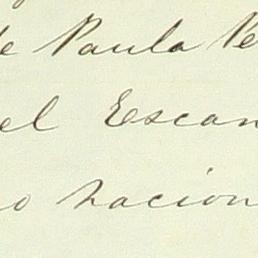 de Paula Pe
el Escan
o nacion